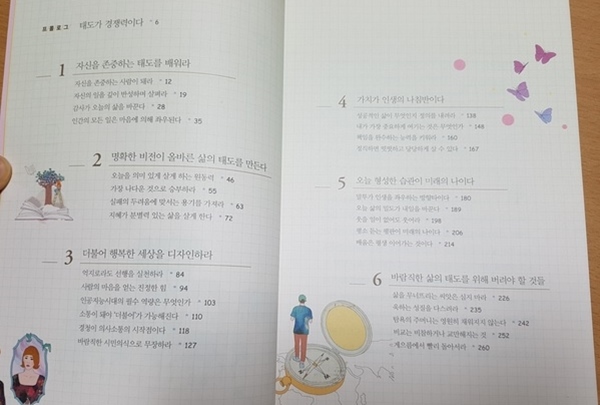 프롤로그 태도가 경쟁력이다 * 6
1 자신을 존중하는 태도를 배워라
자신을 존중하는 사람이 돼라 * 12
자신의 일을 깊이 반성하며 살펴라 * 19
감사가 오늘의 삶을 바꾼다 * 28
인간의 모든 일은 마음에 의해 좌우된다 * 35
2 명확한 비전이 올바른 삶의 태도를 만든다
오늘을 의미 있게 살게 하는 원동력 * 46
가장 나다운 것으로 승부하라 * 55
실패의 두려움에 맞서는 용기를 가져라 * 63
지혜가 분별력 있는 삶을 살게 한다 * 72
3 더불어 행복한 세상을 디자인하라
억지로라도 선행을 실천하라 * 84
사람의 마음을 얻는 진정한 힘 * 94
인공지능시대의 필수 역량은 무엇인가 * 103
소통이 돼야 '더불어'가 가능해진다 * 110
경청이 의사소통의 시작점이다 * 118
바람직한 시민의식으로 무장하라 * 127
4 가치가 인생의 나침반이다
성공적인 삶이 무엇인지 정의를 내려라 * 138
내가 가장 중요하게 여기는 것은 무엇인가 * 148
책임을 완수하는 능력을 키워라 * 160
정직하면 떳떳하고 당당하게 살 수 있다 * 167
5 오늘 형성한 습관이 미래의 나이다
말투가 인생을 좌우하는 방향타이다 * 180
오늘 삶의 밀도가 내일을 바꾼다 * 189
웃을 일이 없어도 웃어라 * 198
평소 듣는 평판이 미래의 나이다 * 206
배움은 평생 이어가는 것이다 * 214
6 바람직한 삶의 태도를 위해 버려야 할 것들
삶을 무너뜨리는 씨앗은 심지 마라 * 226
욕하는 성질을 다스려라 * 235
탐욕의 주머니는 영원히 채워지지 않는다 * 242
비교는 비참하거나 교만해지는 것 * 252
게으름에서 빨리 돌아서라 * 260